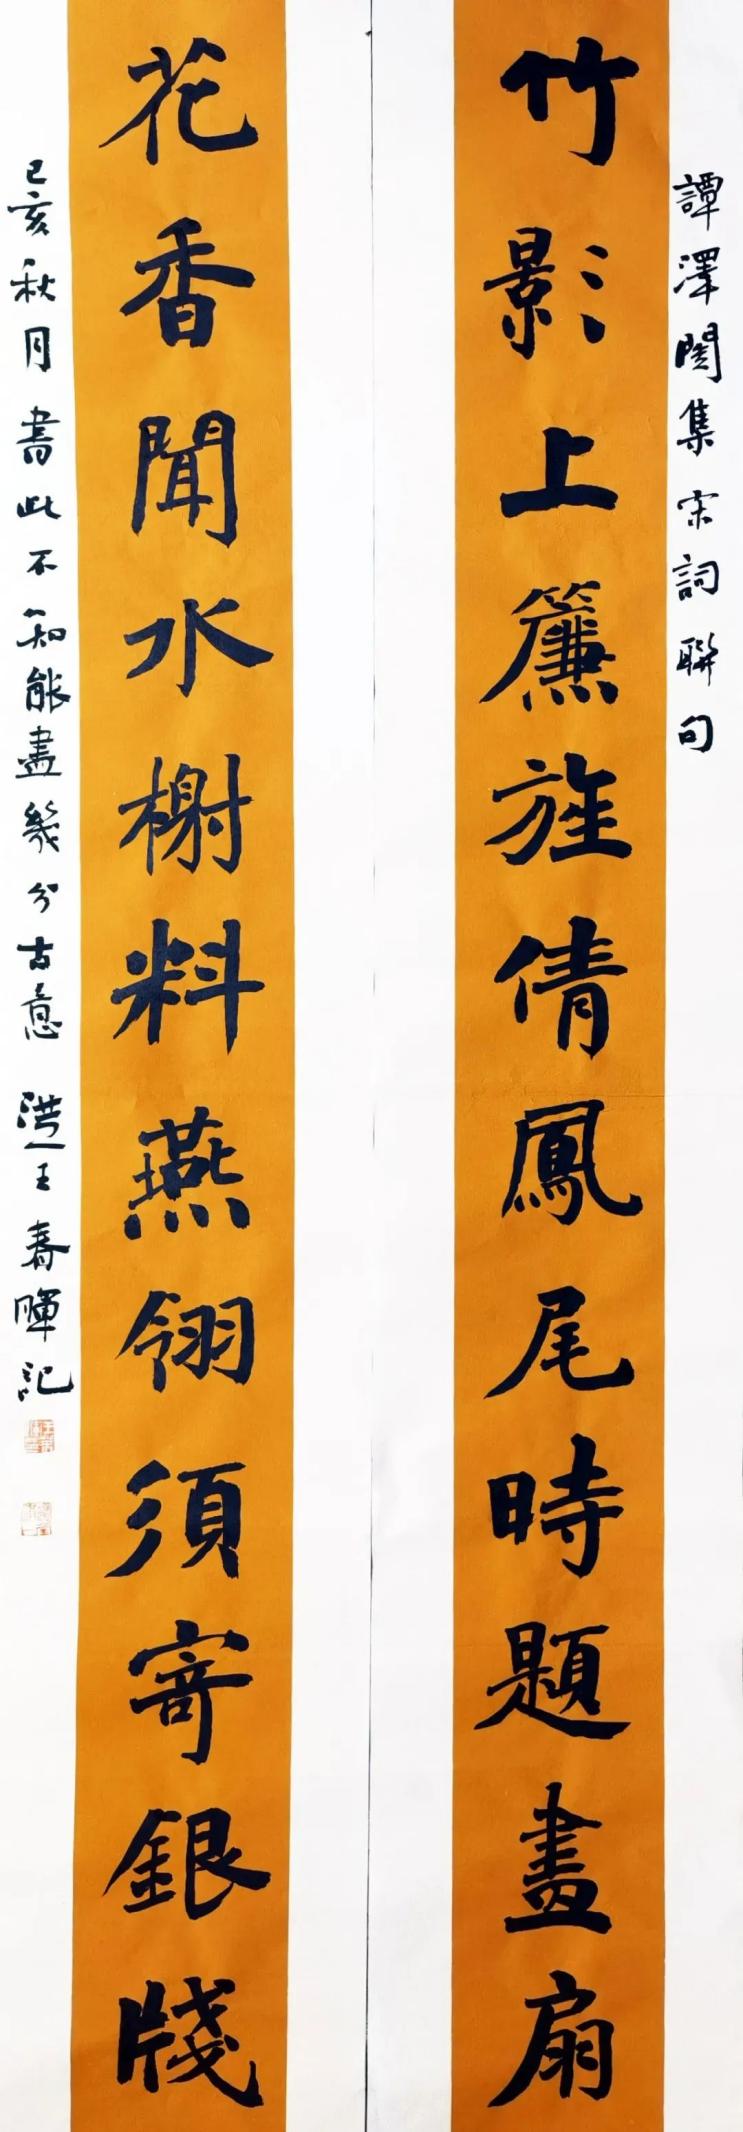 譚澤闓集宋詞聯句
竹影上簾旌倩鳳尾時題畫扇
花香聞水榭料燕翎須寄銀牋
己亥秋月書此不知能盡幾分古意 洪一王春暉記